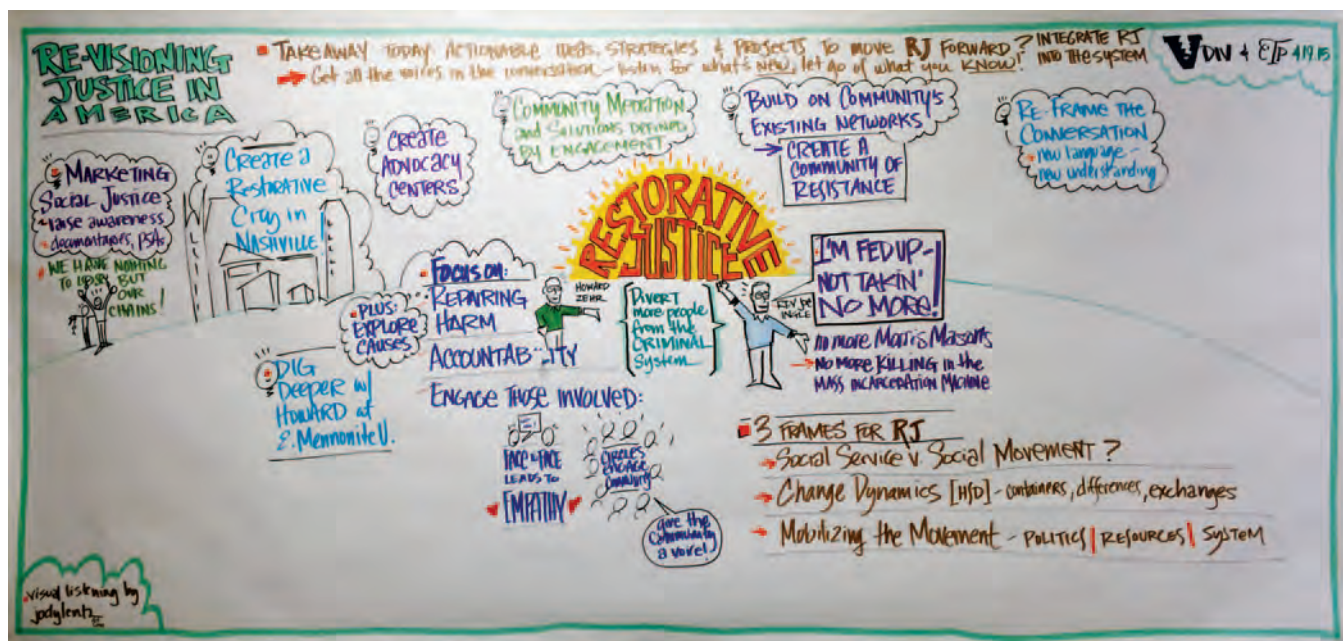 RE-VISIONING
JUSTICE IN
AMERICA
TAKE AWAY TODAY ACTIONABLE IDEAS, STRATEGIES & PROJECTS TO MOVE RJ FORWARD? INTEGRATE RJ
INTO THE SYSTEM
Get all the voices in the conversation - listen for what's NEW, let go of what you KNOW!
V DIV & ETP 4.19.15
MARKETING
Social Justice
raise awareness
documentaries, PSAs
WE HAVE NOTHING
TO LOSE BUT
OUR
CHAINS!
CREATE A
RESTORATIVE
City in
NASHVILLE!
CREATE
ADVOCACY
CENTERS
COMMUNITY MEDIATION
and SOLUTIONS DEFINED
BY ENGAGEMENT
BUILD ON COMMUNITY'S
EXISTING NETWORKS
CREATE A
COMMUNITY OF
RESISTANCE
RE-FRAME THE
CONVERSATION
new language -
new understanding
RESTORATIVE
JUSTICE
PLUS:
EXPLORE
CAUSES
FOCUS ON:
REPAIRING
HARM
ACCOUNTABILITY
ENGAGE THOSE INVOLVED:
HOWARD
ZEHR
DIVERT
more people
from the
CRIMINAL
System
REV. JOE
INGLE
I'M FED UP -
NOT TAKIN'
NO MORE!
no more Morris Masons
NO MORE KILLING in the
MASS INCARCERATION MACHINE
DIG
DEEPER w/
HOWARD at
E. Mennonite U.
FACE to FACE
LEADS TO
EMPATHY
CIRCLES
ENGAGE
COMMUNITY
give the
community
a voice!
3 FRAMES FOR RJ
Social Service v. Social Movement?
Change Dynamics [HSD] - containers, differences, exchanges
Mobilizing the Movement - POLITICS | RESOURCES | SYSTEM
visual listening by
jodylentz